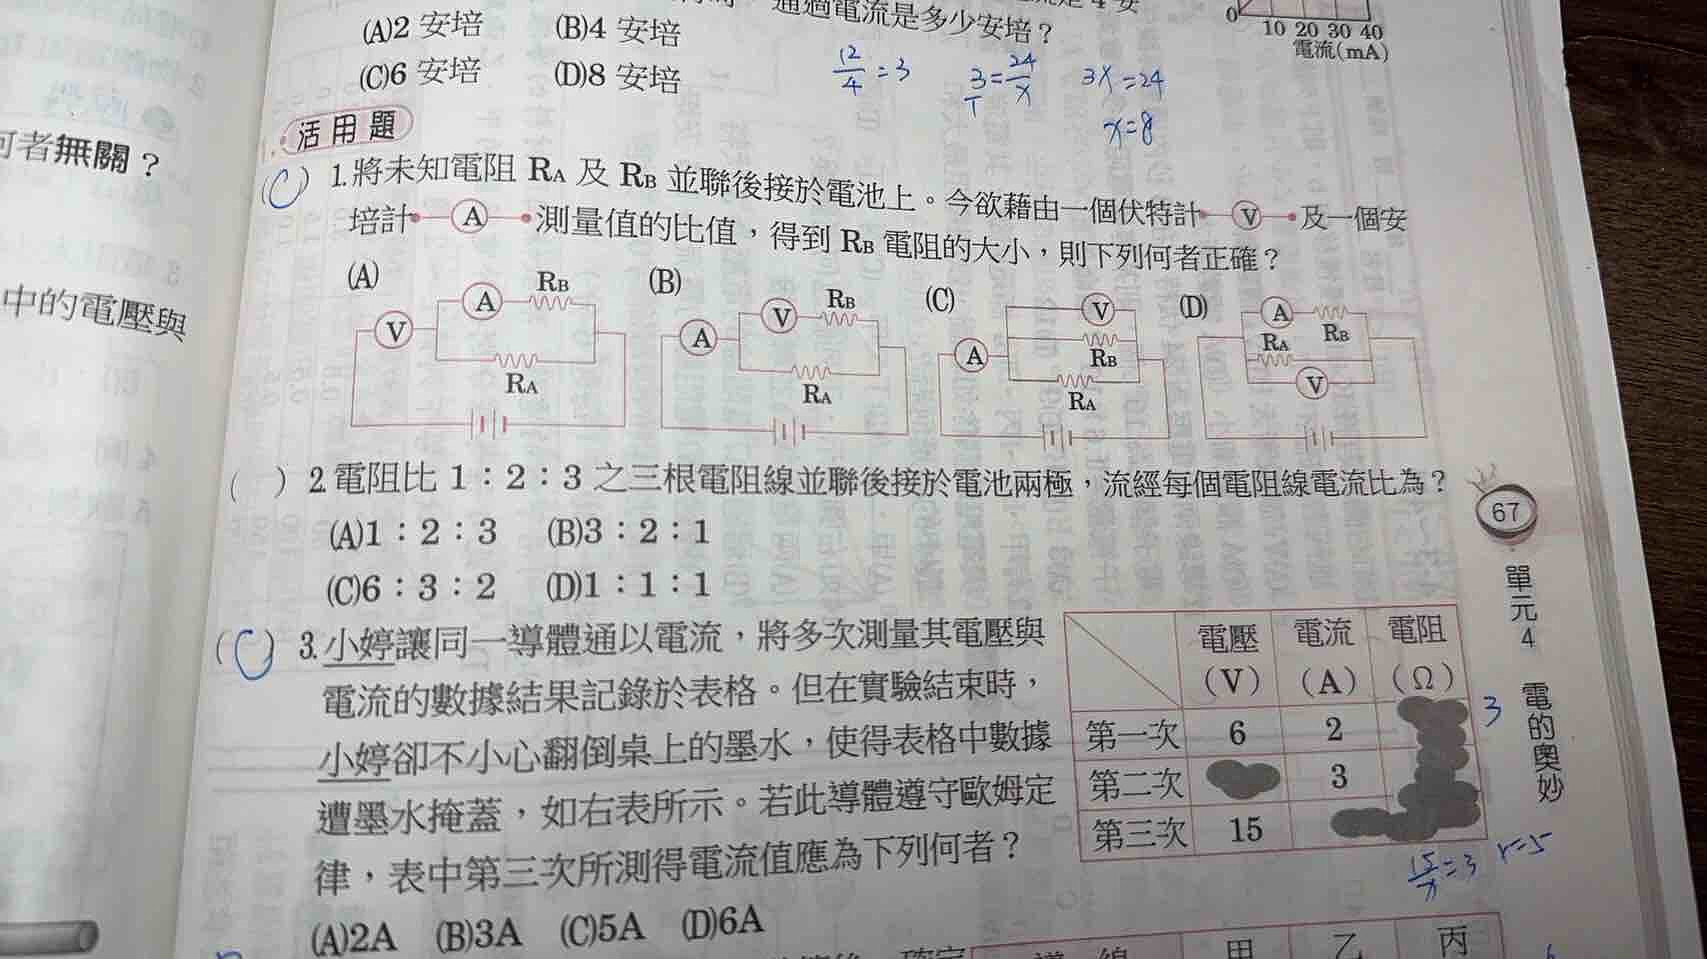 通過電流是多少安培？
(A)2 安培 (B)4 安培
(C)6 安培 (D)8 安培
12/4=3 3/1=24/x 3x=24
x=8
0 10 20 30 40
電流(mA)
何者無關？
中的電壓與
活用題
(C) 1.將未知電阻 RA 及 RB 並聯後接於電池上。今欲藉由一個伏特計 V 及一個安
培計 A 測量值的比值，得到 RB 電阻的大小，則下列何者正確？
(A) V A RB RA
(B) A V RB RA
(C) A V RB RA
(D) A RB RA V
( ) 2.電阻比 1：2：3 之三根電阻線並聯後接於電池兩極，流經每個電阻線電流比為？
(A)1：2：3 (B)3：2：1
(C)6：3：2 (D)1：1：1
(C) 3.小婷讓同一導體通以電流，將多次測量其電壓與
電流的數據結果記錄於表格。但在實驗結束時，
小婷卻不小心翻倒桌上的墨水，使得表格中數據
遭墨水掩蓋，如右表所示。若此導體遵守歐姆定
律，表中第三次所測得電流值應為下列何者？
(A)2A (B)3A (C)5A (D)6A
電壓(V) 電流(A) 電阻(Ω)
第一次 6 2 3
第二次 3
第三次 15
15/x=3 x=5
67
單元4 電的奧妙
導線 甲 乙 丙